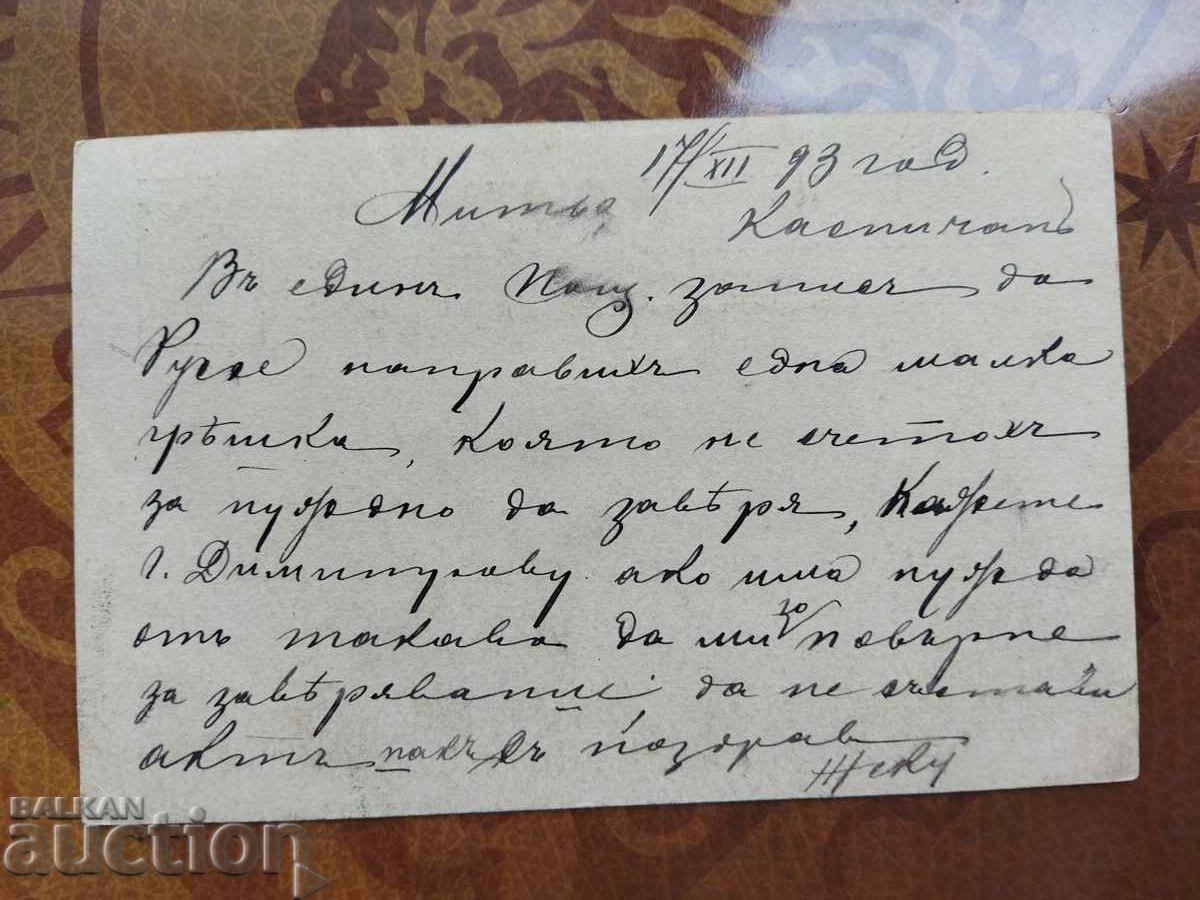 17/XII 93 год.
Митьо, Каспичанъ
Въ единъ Пощ. записъ да
Русе направихъ една малка
грѣшка, която не счетохъ
за нуждно да завѣря, Кажете
г. Димитрову ако има нужда
отъ такава да ми го повърне
за завѣряванне, да не състави
актъ пакъ Съ поздрав
BALKAN
auction